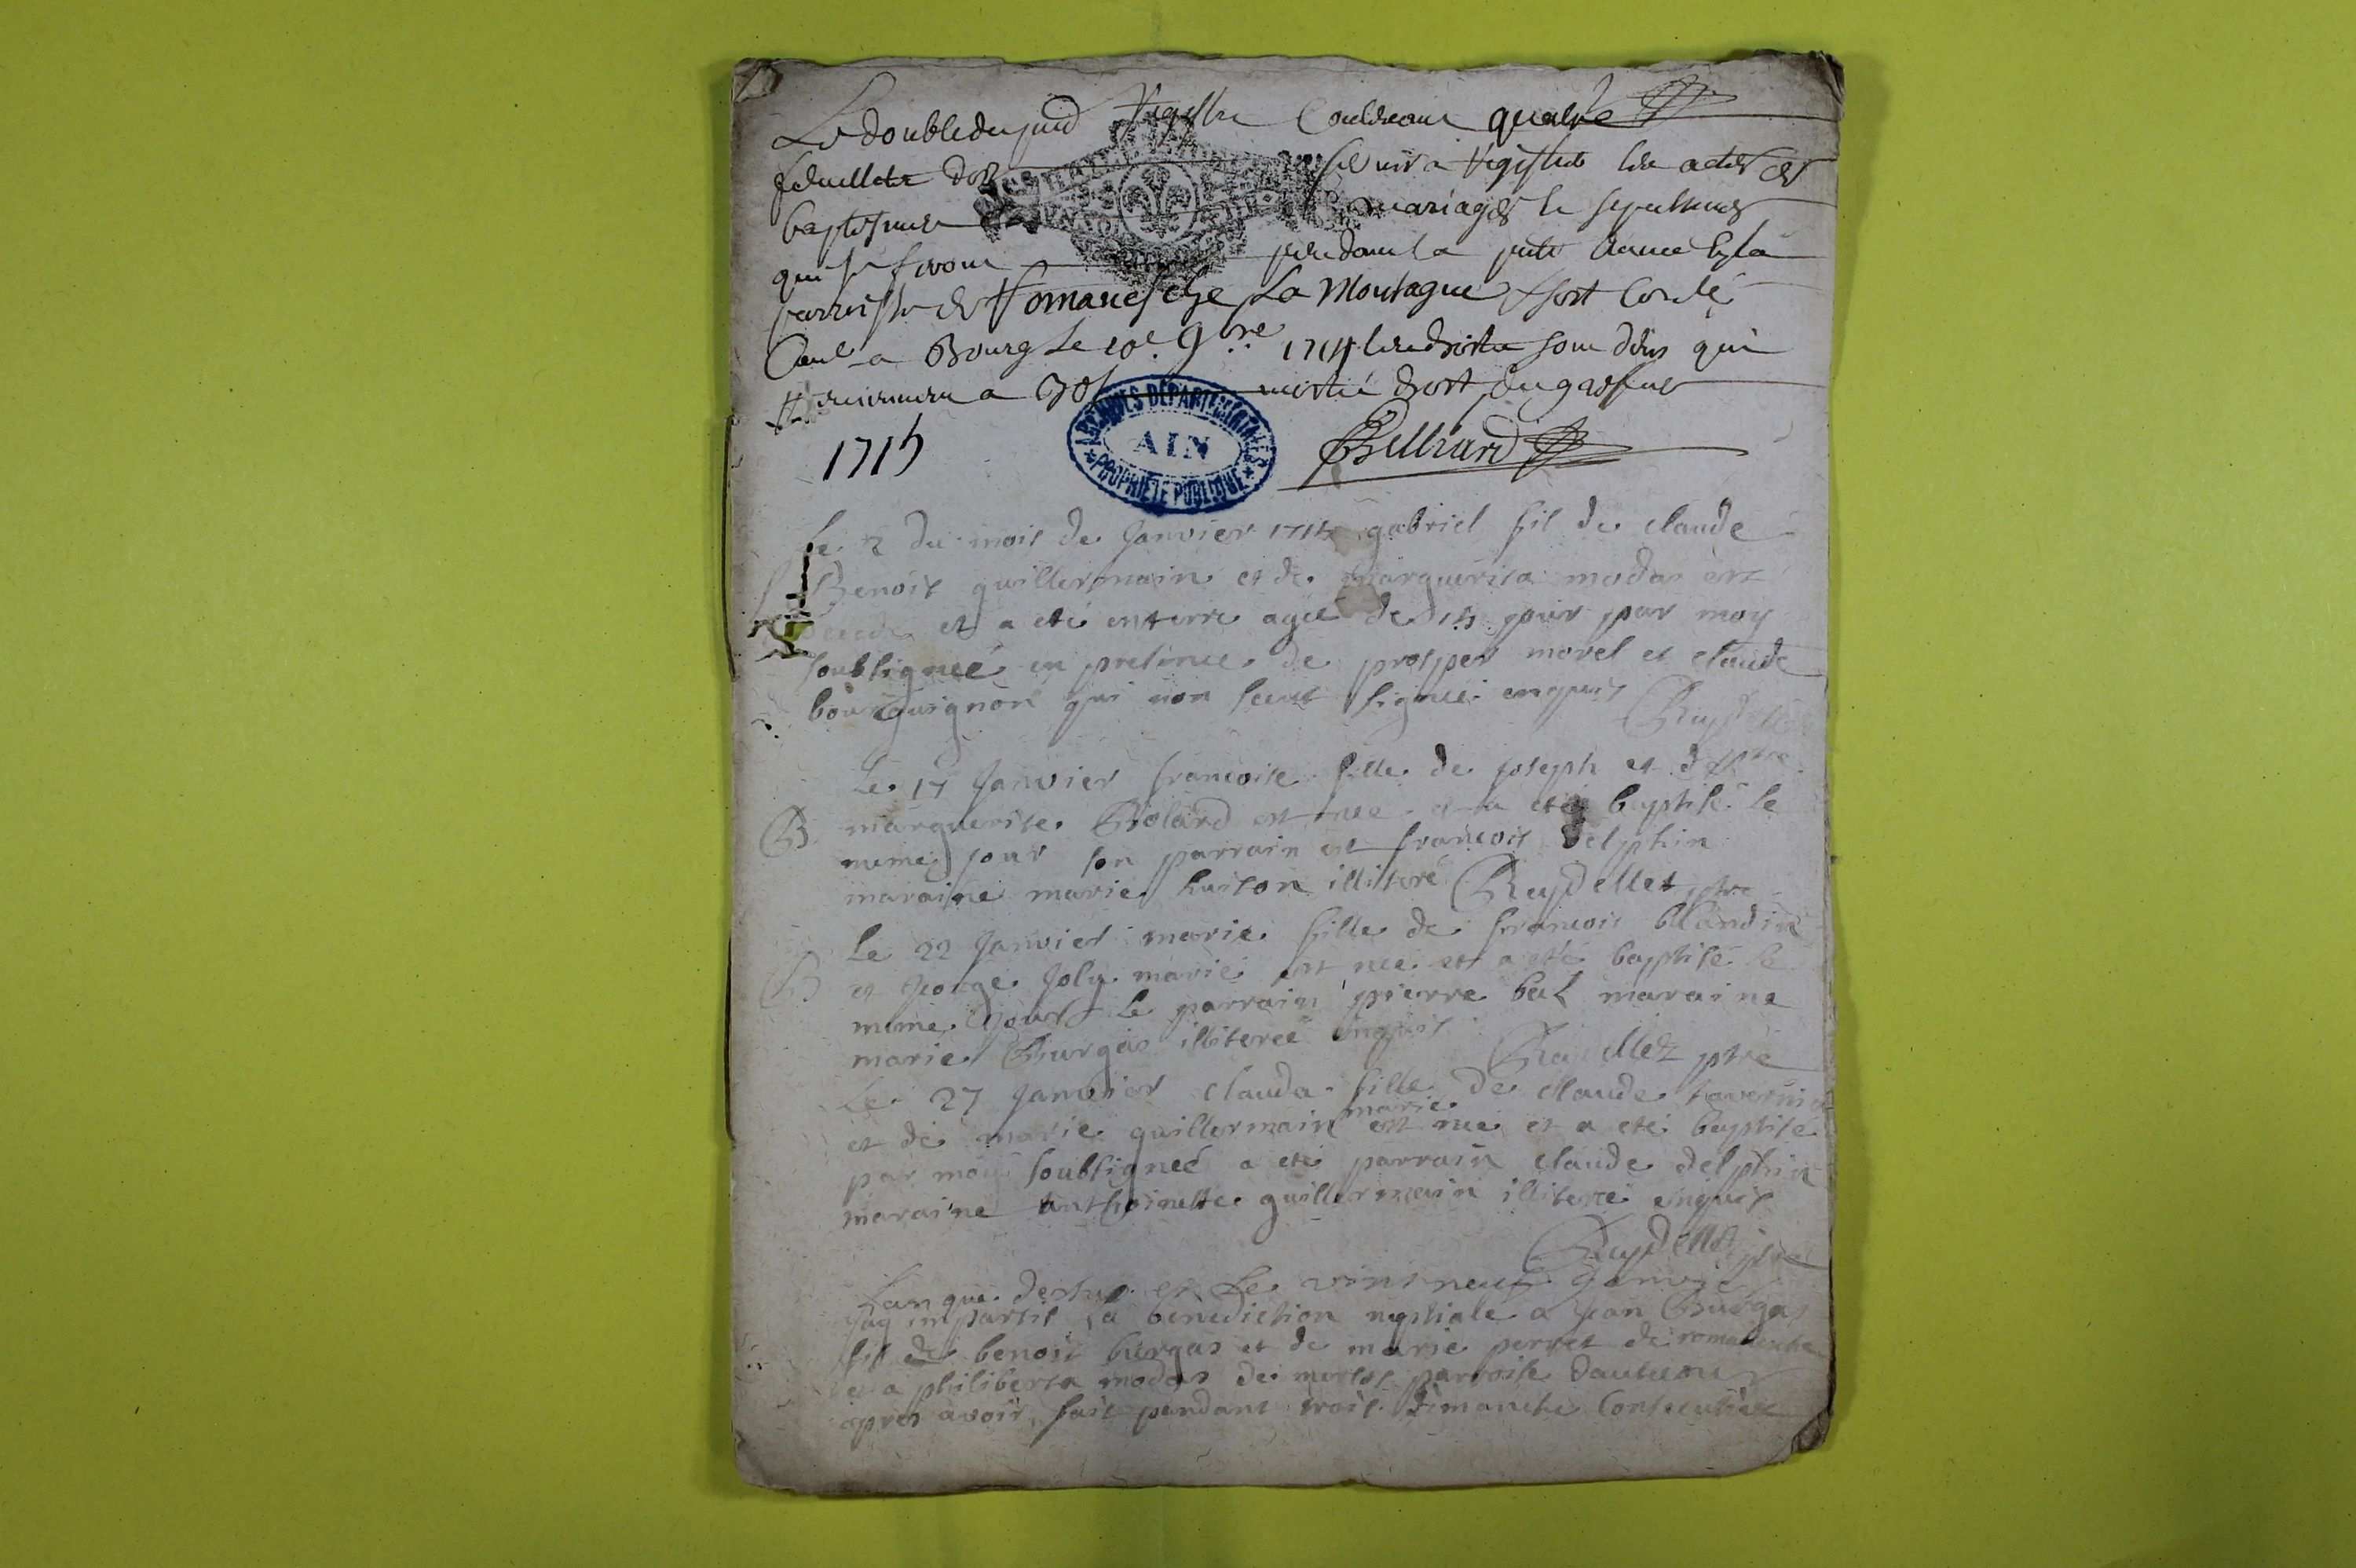 Le double du pnt Registre Contenant quatre
feuillets dos servira Registre les actes de
baptesmes mariages le sepultures
qui se feront pendant la pnte Année En la
parroisse de Romanesche La Montagne
a Bourg le 10e 9bre 1714 les droits sont dûs qui
reviennent a moitié
1715
ARCHIVES DÉPARTEMENTALES
AIN
PROPRIÉTÉ PUBLIQUE
Billiard
Le 2 du mois de Janvier 1715 gabriel fil de claude
Benoit guillermain et de marguerita modas est
decede et a eté enterre ageé de 15 jour par moy
soubsigneé en presence de prosper morel et claude
bourguignon qui non sceut signé enquis Ruydellet
ptre
Le 17 Janvier francoise fille de joseph et de
B marguerite Biolard est nee et a eté baptisé le
meme jour son parrain est francois delphin
maraine marie huiton illiteré Ruydellet ptre
Le 22 Janvier marie fille de francois blandin
B et george Joly marié est nee et a eté baptisé le
meme jour Le parrain pierre bal maraine
marie Burgas illitereé enquis
Ruydellet ptre
Le 27 Janvier clauda fille de claude tavernier
et de marie guillermain marié est neé et a eté baptise
par moy soubsigneé a eté parrain claude delphin
maraine anthoinette guillermain illiteré enquis
Ruydellet ptre
Lan que dessus et Le vint neuf Janvié
Jay impartit la benediction nuptiale a Jean Burgas
fil de benoit burgas et de marie perret de romanesche
et a philiberta modas de parroise
apres avoir fait pendant trois dimanche Consecutive